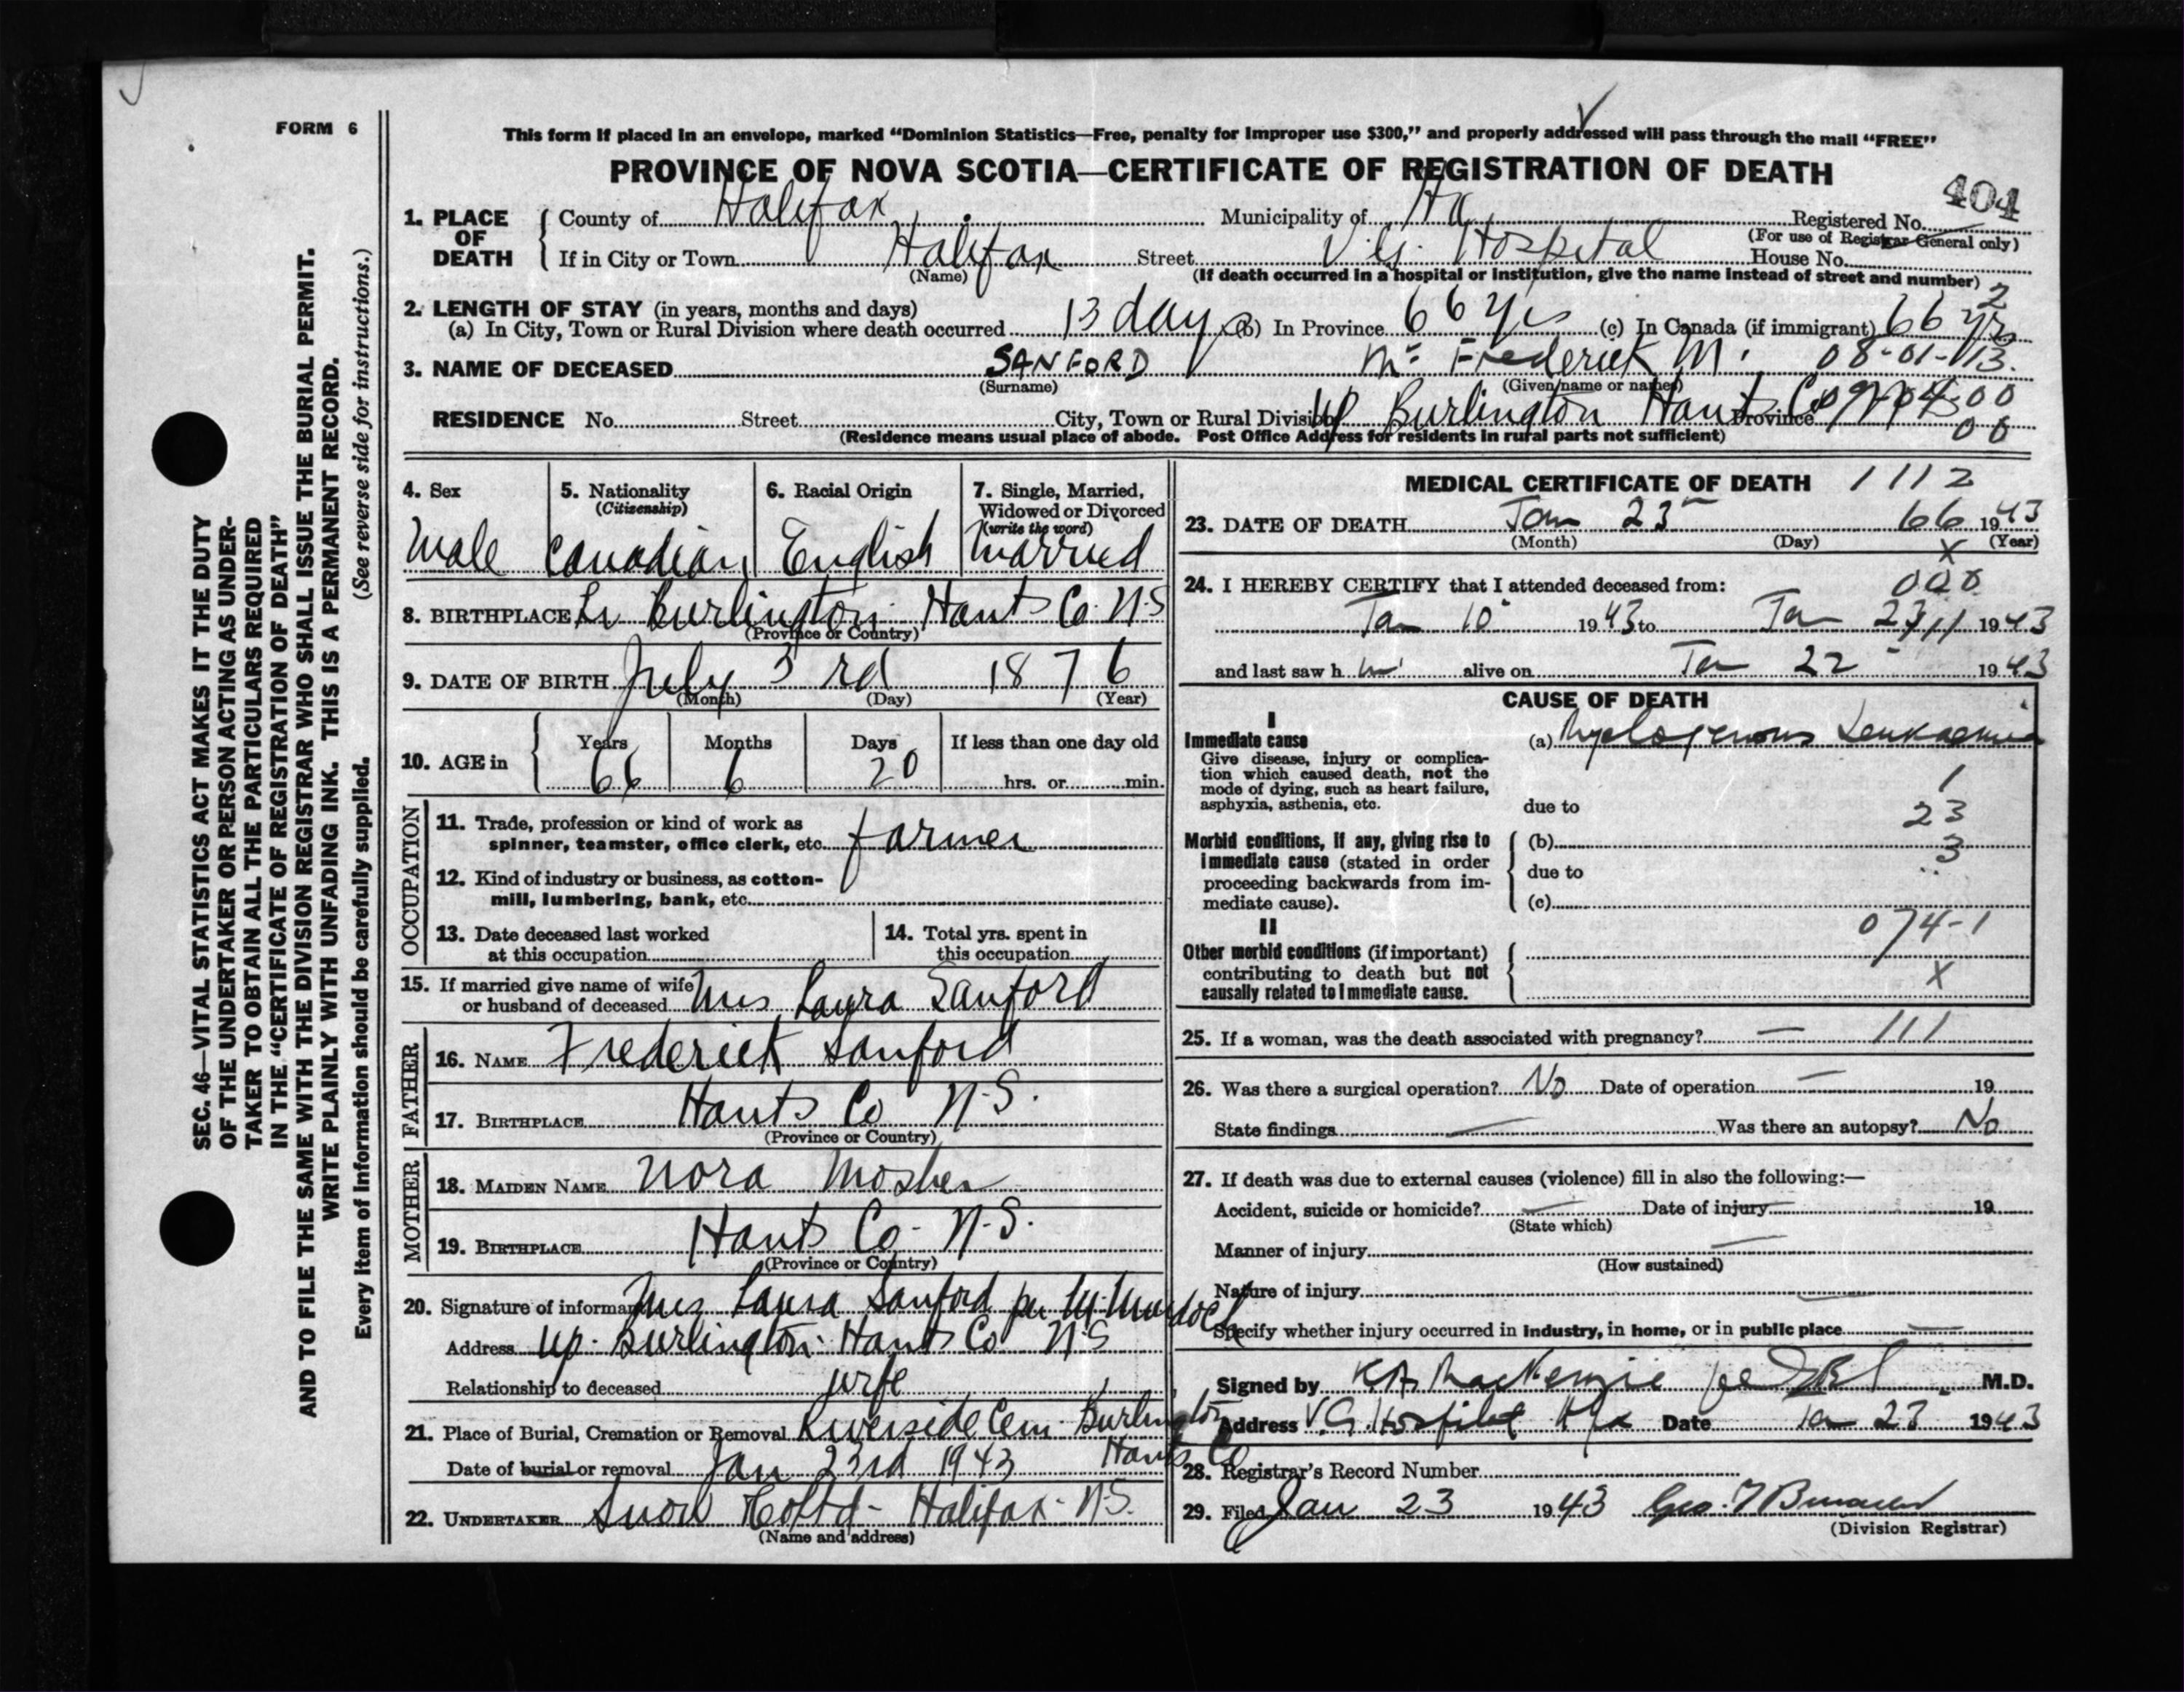 FORM 6
SEC. 46—VITAL STATISTICS ACT MAKES IT THE DUTY
OF THE UNDERTAKER OR PERSON ACTING AS UNDER-
TAKER TO OBTAIN ALL THE PARTICULARS REQUIRED
IN THE "CERTIFICATE OF REGISTRATION OF DEATH"
AND TO FILE THE SAME WITH THE DIVISION REGISTRAR WHO SHALL ISSUE THE BURIAL PERMIT.
WRITE PLAINLY WITH UNFADING INK. THIS IS A PERMANENT RECORD.
Every item of information should be carefully supplied. (See reverse side for instructions.)
This form if placed in an envelope, marked "Dominion Statistics—Free, penalty for improper use $300," and properly addressed will pass through the mail "FREE"
PROVINCE OF NOVA SCOTIA—CERTIFICATE OF REGISTRATION OF DEATH
404
1. PLACE OF DEATH County of Halifax Municipality of Hx Registered No.
(For use of Registrar General only)
If in City or Town Halifax Street V.G. Hospital House No.
(Name) (If death occurred in a hospital or institution, give the name instead of street and number)
2. LENGTH OF STAY (in years, months and days) 2
(a) In City, Town or Rural Division where death occurred 13 days (b) In Province 66 yrs (c) In Canada (if immigrant) 66 yrs
3. NAME OF DECEASED SANFORD Mr Frederick M. 08-01-113.
(Surname) (Given name or names)
RESIDENCE No. Street City, Town or Rural Division Up Burlington Hants Co Province N.S. 09-04-00
(Residence means usual place of abode. Post Office Address for residents in rural parts not sufficient) 00
4. Sex 5. Nationality (Citizenship) 6. Racial Origin 7. Single, Married, Widowed or Divorced (write the word)
Male Canadian English Married
8. BIRTHPLACE Lr Burlington Hants Co. N.S
(Province or Country)
9. DATE OF BIRTH July 3rd 1876
(Month) (Day) (Year)
10. AGE in Years Months Days If less than one day old
66 6 20 hrs. or min.
OCCUPATION
11. Trade, profession or kind of work as
spinner, teamster, office clerk, etc. farmer
12. Kind of industry or business, as cotton-
mill, lumbering, bank, etc.
13. Date deceased last worked
at this occupation
14. Total yrs. spent in
this occupation
15. If married give name of wife
or husband of deceased Mrs Laura Sanford
FATHER
16. NAME Frederick Sanford
17. BIRTHPLACE Hants Co N.S.
(Province or Country)
MOTHER
18. MAIDEN NAME Nora Mosher
19. BIRTHPLACE Hants Co- N.S.
(Province or Country)
20. Signature of informant Mrs Laura Sanford per M. Murdoch
Address Up. Burlington Hants Co N.S
Relationship to deceased wife
21. Place of Burial, Cremation or Removal Riverside Cem Burlington
Hants Co
Date of burial or removal Jan 23rd 1943
22. UNDERTAKER Snow Co Ltd- Halifax N.S.
(Name and address)
MEDICAL CERTIFICATE OF DEATH 1112
23. DATE OF DEATH Jan 23 66 1943
(Month) (Day) (Year)
X
24. I HEREBY CERTIFY that I attended deceased from: 000
Jan 10 1943 to Jan 23 11 1943
and last saw him alive on Jan 22 1943
CAUSE OF DEATH
I
Immediate cause (a) Myelogenous Leukaemia
Give disease, injury or complica-
tion which caused death, not the
mode of dying, such as heart failure,
asphyxia, asthenia, etc.
due to
1
23
3
Morbid conditions, if any, giving rise to
immediate cause (stated in order
proceeding backwards from im-
mediate cause).
(b)
due to
(c)
074-1
II
Other morbid conditions (if important)
contributing to death but not
causally related to immediate cause.
X
25. If a woman, was the death associated with pregnancy? — 111
26. Was there a surgical operation? No Date of operation — 19
State findings — Was there an autopsy? No
27. If death was due to external causes (violence) fill in also the following:—
Accident, suicide or homicide? — Date of injury — 19
(State which)
Manner of injury —
(How sustained)
Nature of injury —
Specify whether injury occurred in industry, in home, or in public place —
Signed by K A MacKenzie M.D.
Address V.G. Hospital Hfx Date Jan 23 1943
28. Registrar's Record Number
29. Filed Jan 23 1943 Geo.
(Division Registrar)